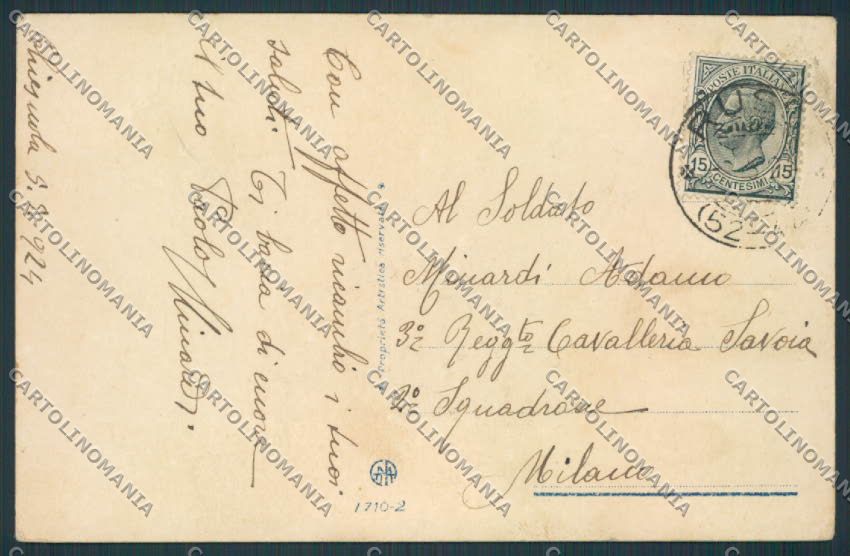 Con affetto ricambio i tuoi
saluti. Ti bacia di cuore
il tuo Paolo Minardi.
5. 1924
Proprietà Artistica riservata
1710-2
POSTE ITALIANE
15 15
CENTESIMI
(52
Al Soldato
Minardi Adamo
3º Reggto Cavalleria Savoia
2º Squadrone
Milano
CARTOLINOMANIA